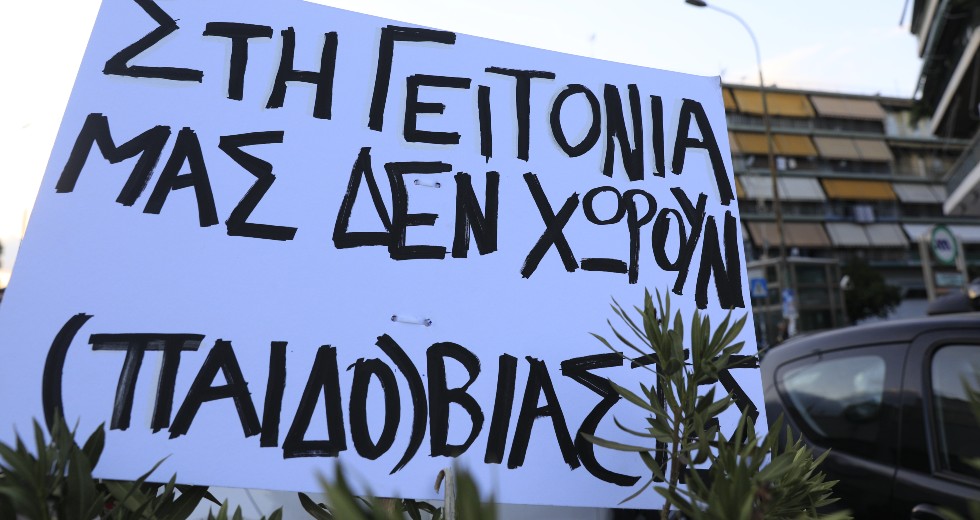 ΣΤΗ ΓΕΙΤΟΝΙΑ
ΜΑΣ ΔΕΝ ΧΩΡΟΥΝ
(ΠΑΙΔΟ)ΒΙΑΣΤΕΣ